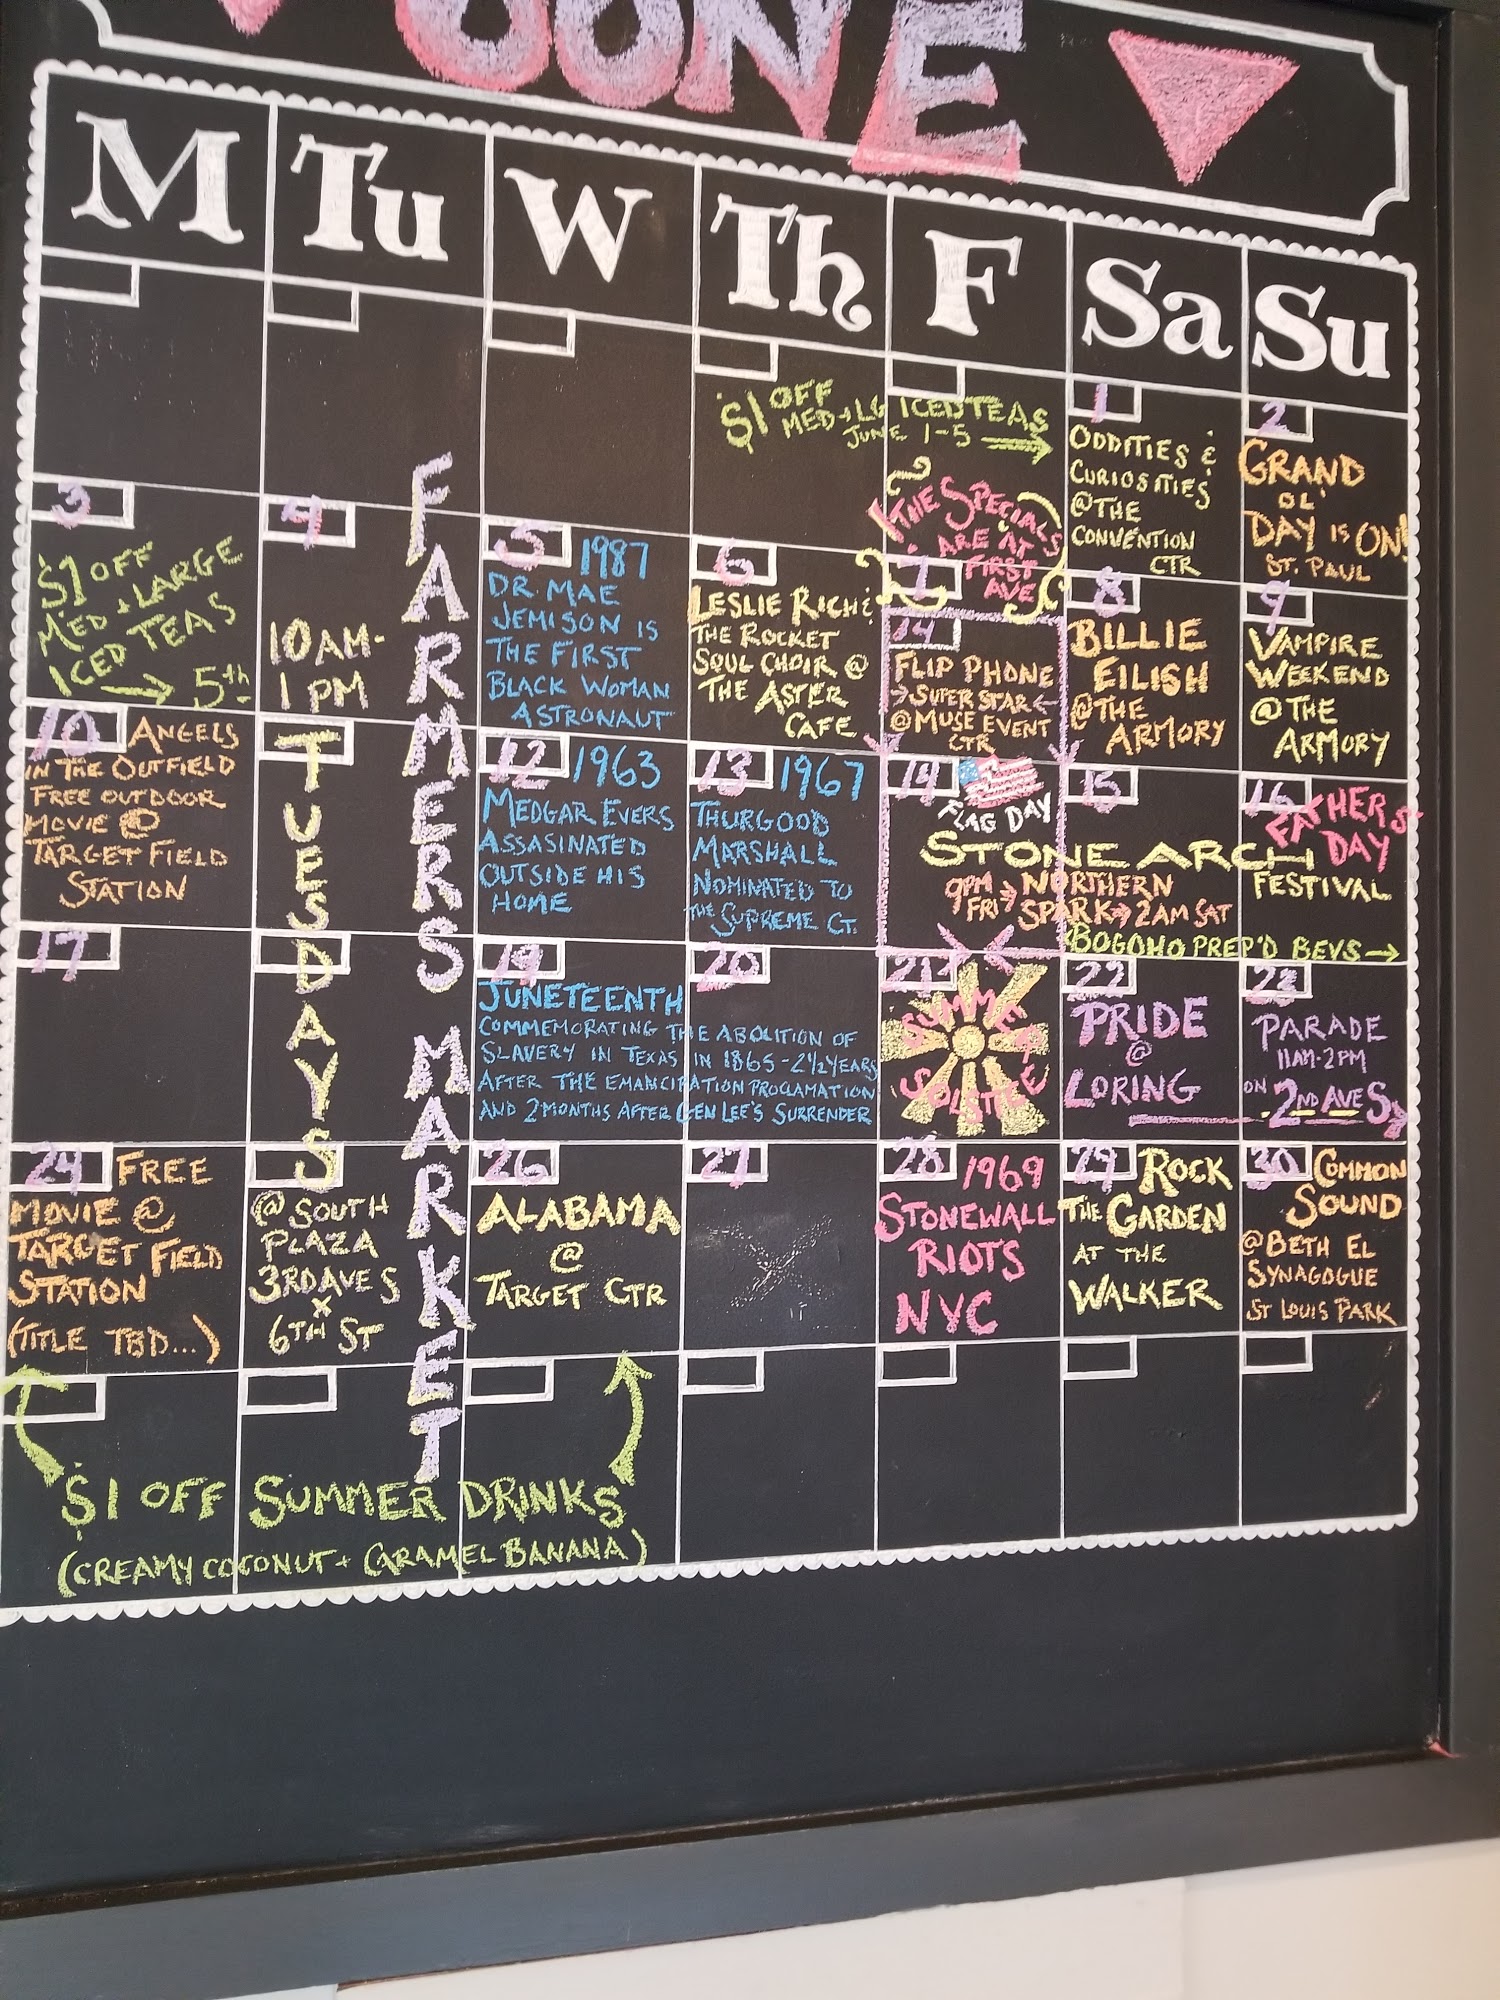 JUNE
M Tu W Th F Sa Su
$1 OFF
MED + LG ICED TEAS
JUNE 1-5
1
ODDITIES &
CURIOSITIES
@ THE
CONVENTION
CTR
2
GRAND
OL'
DAY IS ON!
ST. PAUL
3
$1 OFF
MED + LARGE
ICED TEAS
5th
4
10AM-
1PM
FARMERS MARKET
TUESDAYS
@ SOUTH
PLAZA
3RD AVE S
X
6TH ST
5 1987
DR. MAE
JEMISON IS
THE FIRST
BLACK WOMAN
ASTRONAUT
6
LESLIE RICH &
THE ROCKET
SOUL CHOIR @
THE ASTER
CAFE
THE SPECIALS
ARE AT
FIRST
AVE
7
14
FLIP PHONE
SUPER STAR
@ MUSE EVENT
CTR
8
BILLIE
EILISH
@ THE
ARMORY
9
VAMPIRE
WEEKEND
@ THE
ARMORY
10 ANGELS
IN THE OUTFIELD
FREE OUTDOOR
MOVIE @
TARGET FIELD
STATION
12 1963
MEDGAR EVERS
ASSASINATED
OUTSIDE HIS
HOME
13 1967
THURGOOD
MARSHALL
NOMINATED TO
THE SUPREME CT.
14
FLAG DAY
15
16 FATHERS
DAY
STONE ARCH
FESTIVAL
9PM
FRI
NORTHERN
SPARK 2AM SAT
BOGOHO PREP'D BEVS
17
19
JUNETEENTH
COMMEMORATING THE ABOLITION OF
SLAVERY IN TEXAS IN 1865 - 2 1/2 YEARS
AFTER THE EMANCIPATION PROCLAMATION
AND 2 MONTHS AFTER GEN LEE'S SURRENDER
20
21
SUMMER
SOLSTICE
22
PRIDE
@
LORING
23
PARADE
11AM-2PM
ON
2ND AVE S
24 FREE
MOVIE @
TARGET FIELD
STATION
(TITLE TBD...)
26
ALABAMA
@
TARGET CTR
27
28 1969
STONEWALL
RIOTS
NYC
29 ROCK
THE GARDEN
AT THE
WALKER
30 COMMON
SOUND
@ BETH EL
SYNAGOGUE
ST LOUIS PARK
$1 OFF SUMMER DRINKS
(CREAMY COCONUT + CARAMEL BANANA)